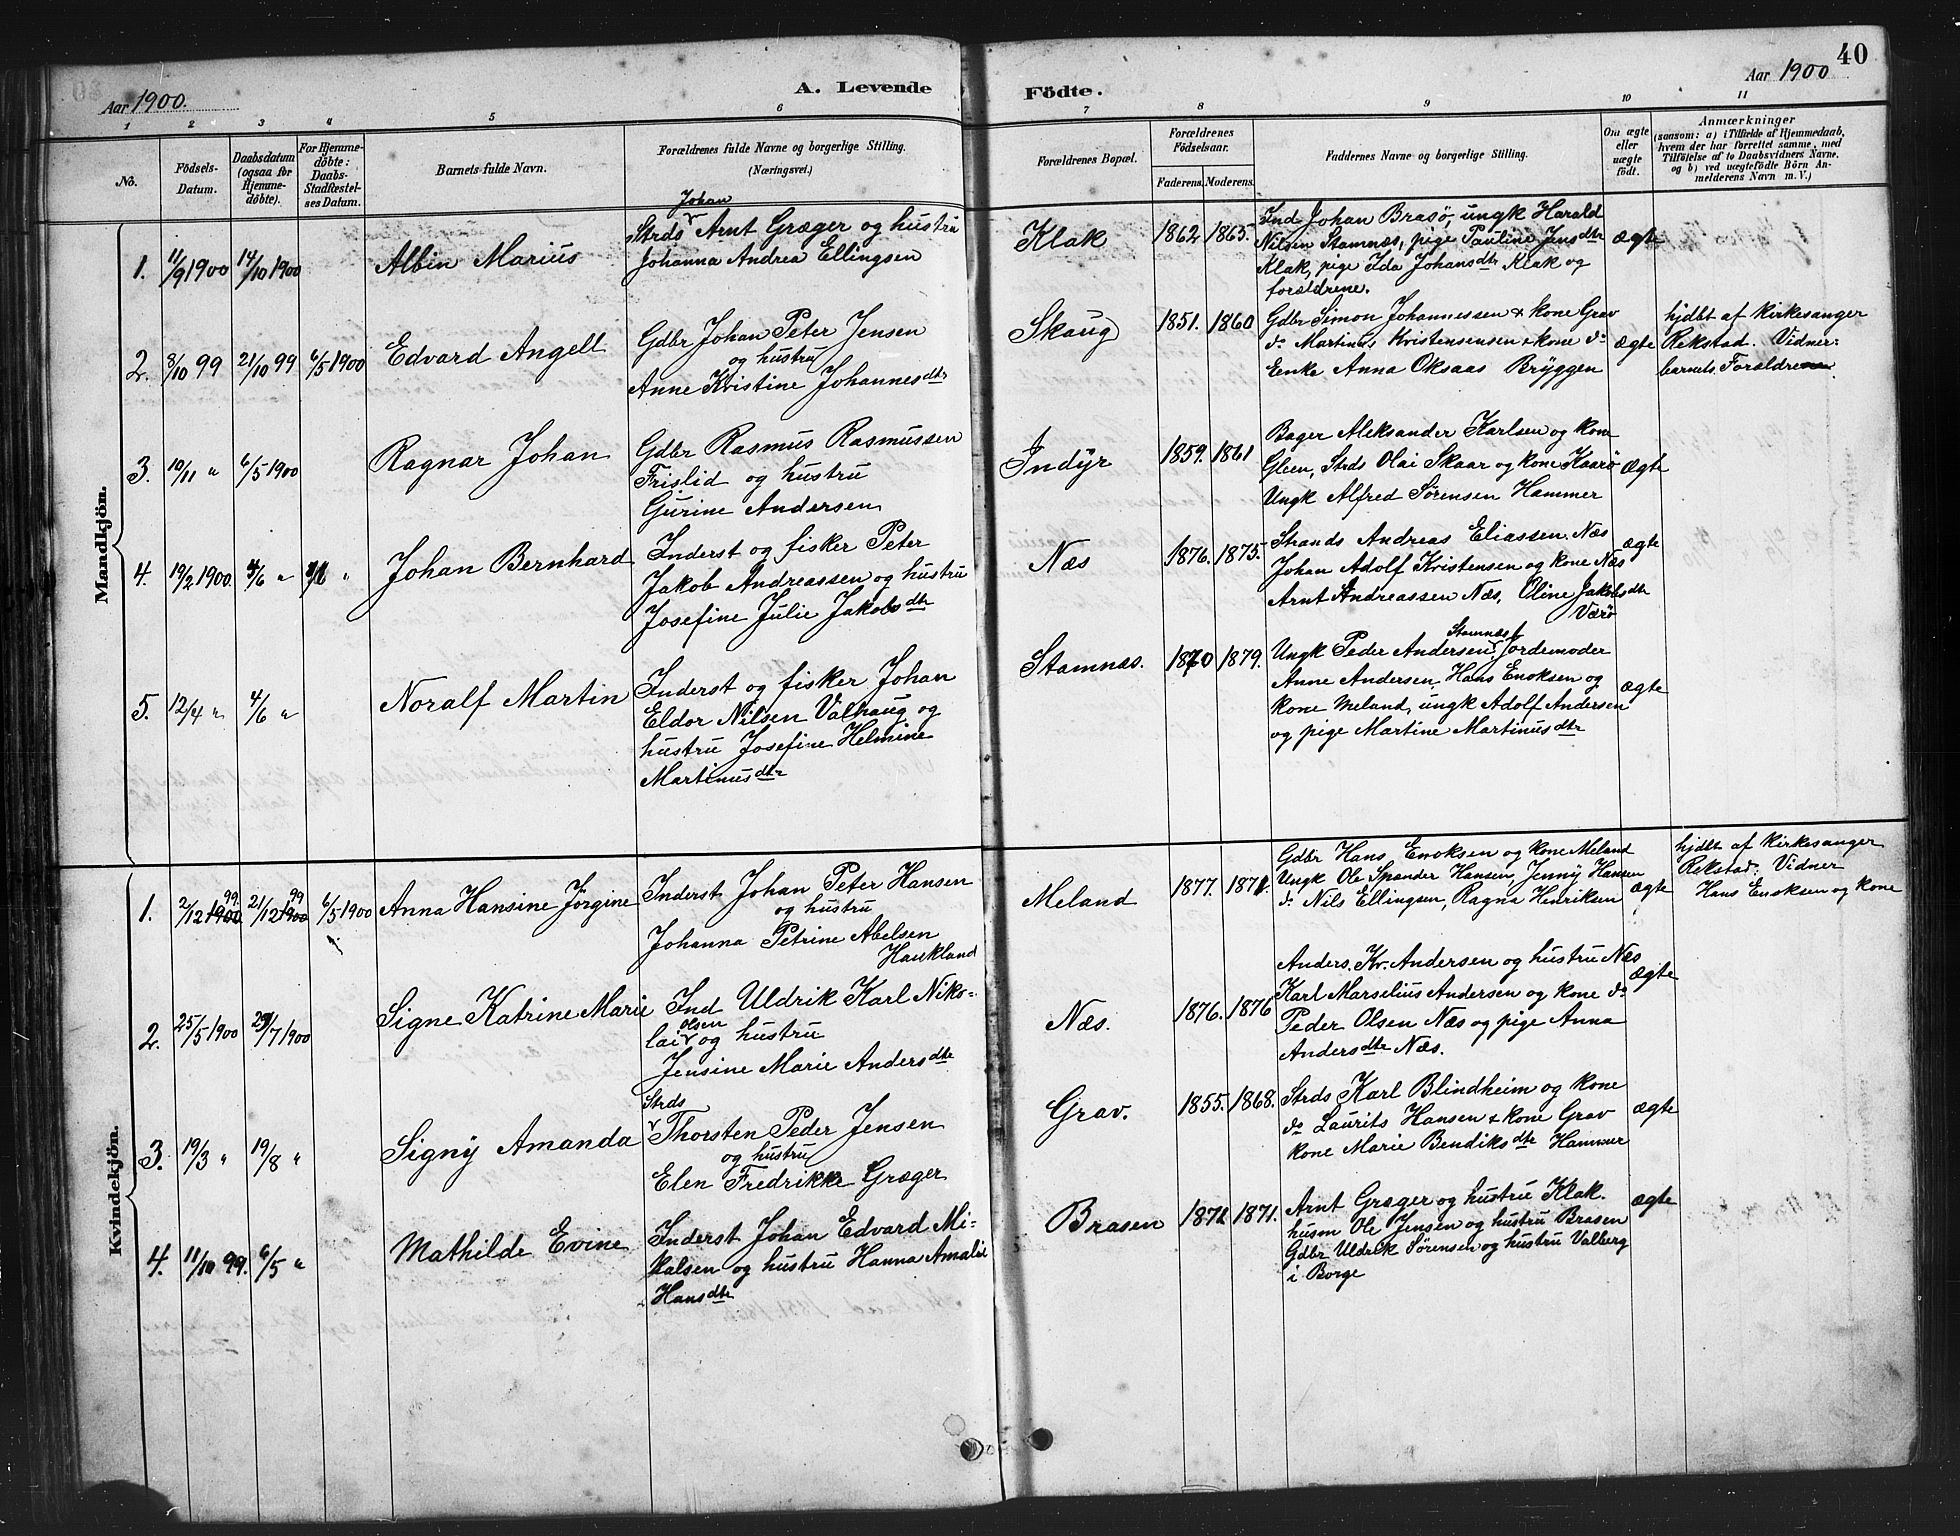 40
Aar 1900.
A. Levende
Födte.
Aar 1900
1 2 3 4 5 6 7 8 9 10 11
No.
Födsels-
Datum.
Daabsdatum
(ogsaa for
Hjemme-
döbte).
For Hjemme-
döbte:
Daabs-
Stadfæstel-
ses Datum.
Barnets fulde Navn.
Forældrenes fulde Navne og borgerlige Stilling.
(Næringsvei.)
Forældrenes Bopæl.
Forældrenes
Födselsaar.
Faderens. Moderens.
Faddernes Navne og borgerlige Stilling.
Om ægte
eller
uægte
født.
Anmærkninger
(saasom: a) i Tilfælde af Hjemmedaab,
hvem der har forrettet samme, med
Tilföielse af to Daabsvidners Navne,
og b) ved uægtefödte Börn An-
melderens Navn m. V.)
Mandkjön.
1. 11/9 1900 14/10 1900
Albin Marius
Johan
Strds Arnt Græger og hustru
Johanna Andrea Ellingsen
Klak
1862 1865.
Ind Johan Brasø, ungk Harald
Nilsen Stamnæs, pige Pauline Jensdtr
Klak, pige Ida Johansdtr Klak og
forældrene.
ægte
2. 8/10 99 21/10 99 6/5 1900
Edvard Angell
Gdbr Johan Peter Jensen
og hustru
Anne Kristine Johannesdtr
Skaug
1851. 1860
Gdbr Simon Johannessen + kone Grav
do Martinus Kristensensen + kone do
Enke Anna Oksaas Bryggen
ægte
hjdbt af kirkesanger
Rekstad. Vidner:
barnets Forældrene
3. 10/11 " 6/5 1900
Ragnar Johan
Gdbr Rasmus Rasmussen
Frislid og hustru
Gurine Andersen
Indyr
1859. 1861
Bager Aleksander Karlsen og kone
Gleen, Strds Olai Skaar og kone Kaarø
Ungk Alfred Sørensen Hammer
ægte
4. 19/2 1900. 4/6 "
Johan Bernhard
Inderst og fisker Peter
Jakob Andreassen og hustru
Josefine Julie Jakobsdtr
Næs
1876. 1875.
Strands Andreas Eliassen Næs
Johan Adolf Kristensen og kone Næs
Arnt Andreassen Næs, Oline Jakobsdtr
Værø
ægte
5. 12/4 " 4/6 "
Noralf Martin
Inderst og fisker Johan
Eldor Nilsen Valhaug og
hustru Josefine Helmine
Martinusdtr
Stamnæs.
1870 1879.
Stamnæs
Ungk Peder Andersen Jordemoder
Anne Andersen, Hans Enoksen og
kone Meland, ungk Adolf Andersen
og pige Martine Martinusdtr
ægte
Kvindekjön.
1. 2/12 1900 99 21/12 1900 99 6/5 1900
Anna Hansine Jørgine
Inderst Johan Peter Hansen
og hustru
Johanna Petrine Abelsen
Haukland
Meland
1877. 1871.
Gdbr Hans Enoksen og kone Meland
Ungk Ole Spander Hansen, Jenny Hansen
do Nils Ellingsen, Ragna Henriksen
ægte
hjdbt af kirkesanger
Rekstad: Vidner
Hans Enoksen og kone
2. 25/5 1900 29/7 1900
Signe Katrine Marie
Ind Uldrik Karl Niko-
olsen
lai og hustru
Jensine Marie Andersdtr
Næs.
1876. 1876
Anders. Kr. Andersen og hustru Næs
Karl Marselius Andersen og kone do
Peder Olsen Næs og pige Anna
Andersdtr Næs.
ægte
3. 19/3 " 19/8 "
Signy Amanda
Strds
Thorsten Peder Jensen
og hustru
Elen Fredrikke Græger
Grav.
1855. 1868.
Strds Karl Blindheim og kone
do Laurits Hansen + kone Grav
kone Marie Bendiksdtr Hammer
ægte
4. 11/10 99. 6/5 "
Mathilde Evine
Inderst Johan Edvard Mi-
kalsen og hustru Hanna Amalie
Hansdtr
Brasen
1872 1871.
Arnt Græger og hustru Klak.
husm Ole Jensen og hustru Brasen
Gdbr Uldrik Sørensen og hustru Valberg
i Borge
ægte